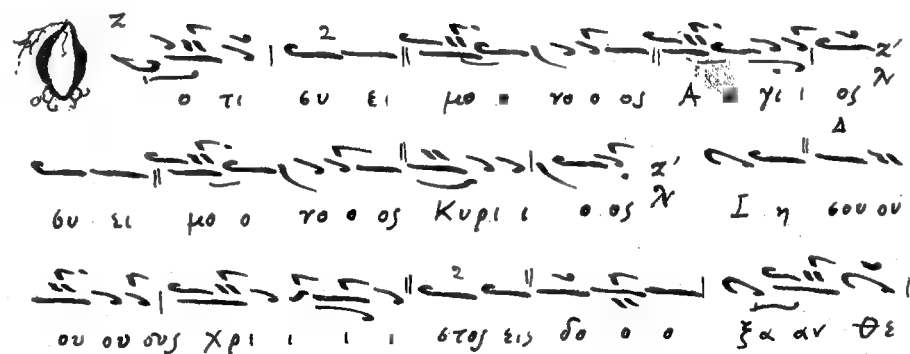 Ο ο τι συ ει μο ο νο ο ος Α α γι ι ος
συ ει μο ο νο ο ος Κυρι ι ο ος Ι η σου ου
ου ου ους χρι ι ι ι στος εις δο ο ο ξα αν Θε